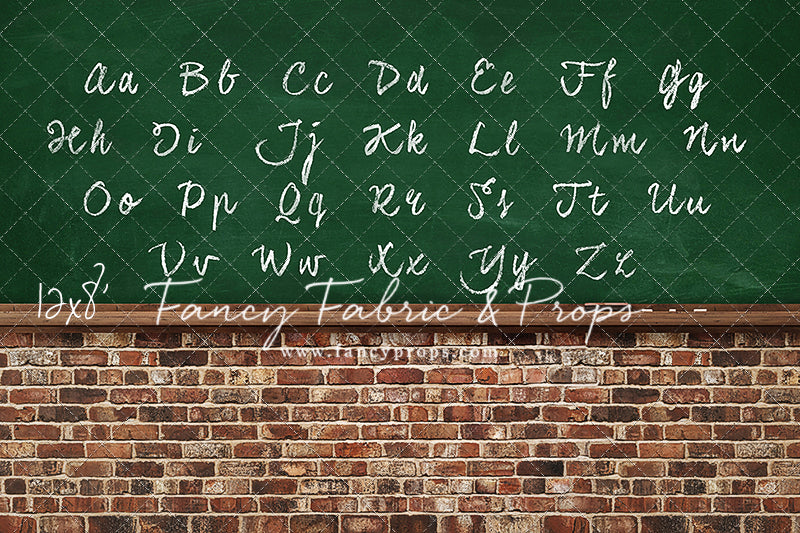 Aa Bb Cc Dd Ee Ff Gg
Hh Ii Jj Kk Ll Mm Nn
Oo Pp Qq Rr Ss Tt Uu
Vv Ww Xx Yy Zz
12x8'
Fancy Fabric & Props
www.fancyprops.com